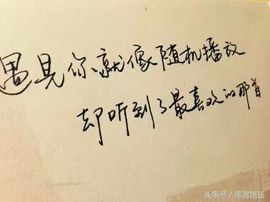 遇見你就像随机播放
却听到了最喜欢的那首
头条号/墨言路医